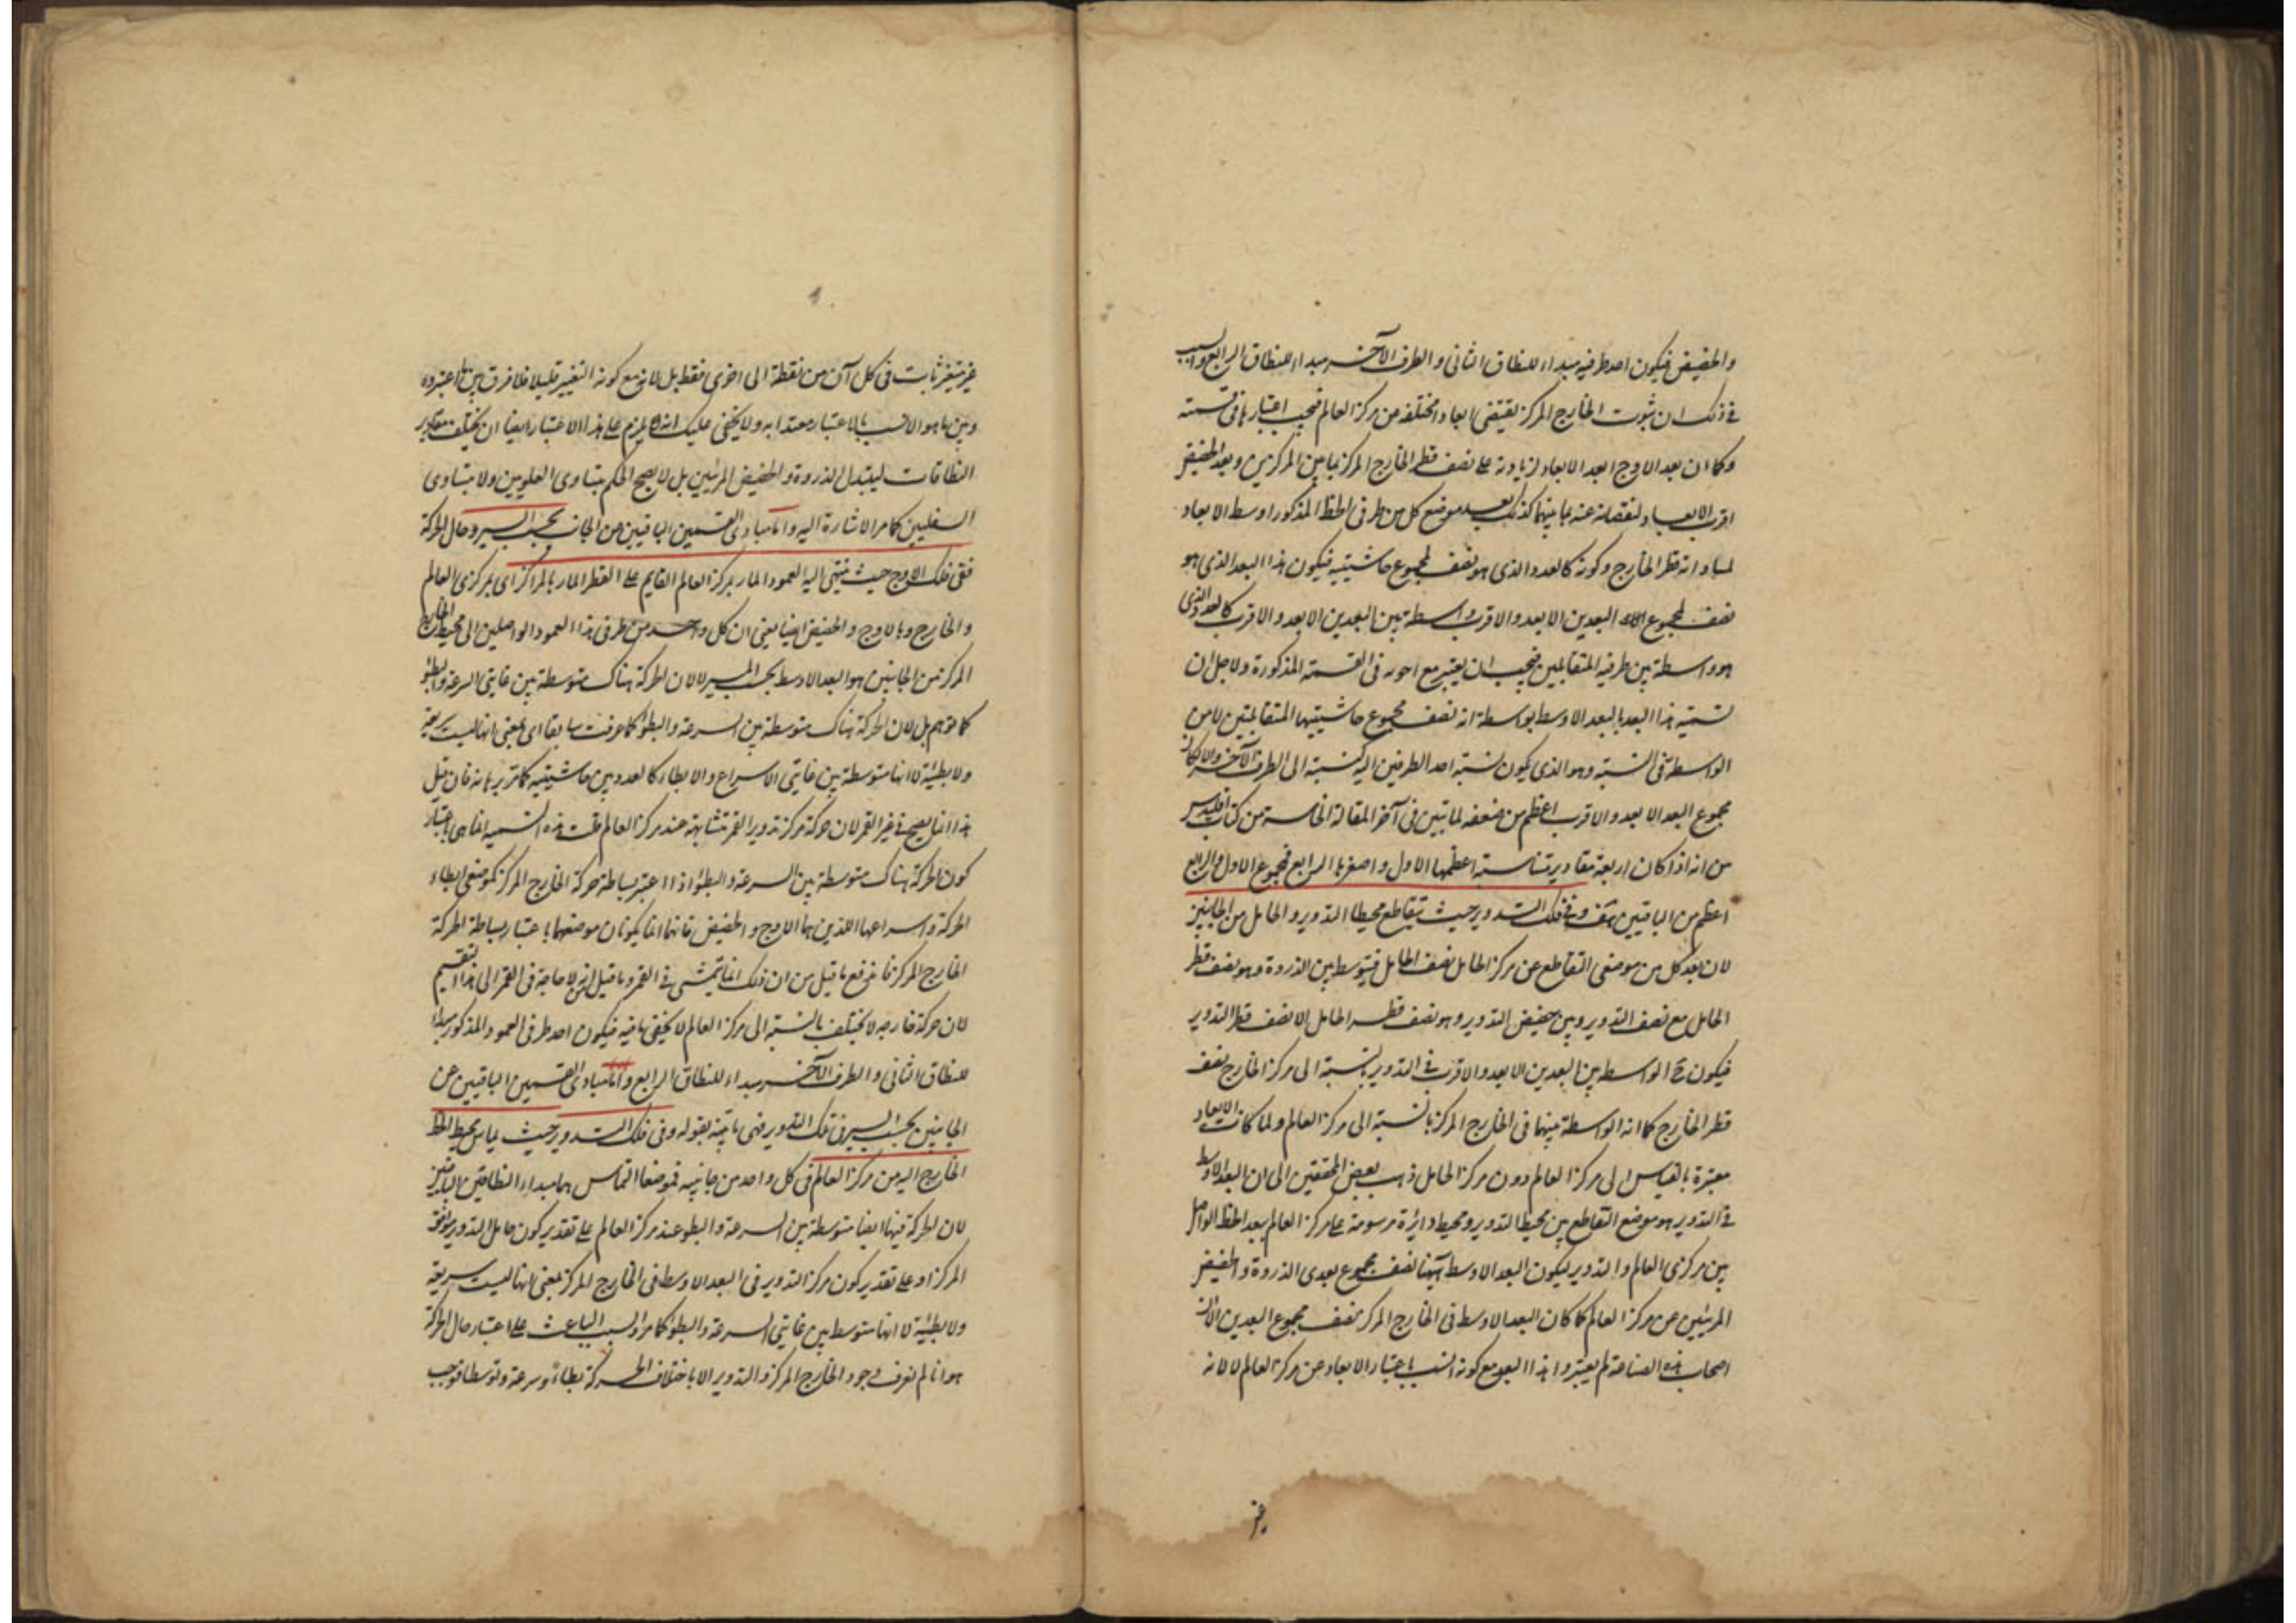 والحضيض فيكون احد طرفيه مبداء للنطاق الثانى والطرف الآخر مبداء للنطاق الرابع والسبب
فى ذلك ان ثبوت الخارج المركز يقتضى ابعادا مختلفة من مركز العالم فيجب اعتبارها فى قسمته
وكما ان بعد الاوج ابعد الابعاد لزيادته على نصف قطر الخارج المركز بما بين المركزين وبعد الحضيض
اقرب الابعاد لنقصانه عنه بما بينهما كذلك بعد موضع كل من طرفى الخط المذكور اوسط الابعاد
لمساواته قطر الخارج وكونه كالعدد الذى هو نصف لمجموع حاشيتيه فيكون هذا البعد الذى هو
نصف لمجموع البعدين الابعد والاقرب واسطة بين البعدين الابعد والاقرب كالعدد الذى
هو واسطة بين طرفيه المتقابلين فيجب ان يعتبر مع اخويه فى القسمة المذكورة ولاجل ان
تسميته هذا البعد بالبعد الاوسط بواسطة انه نصف مجموع حاشيتيها المتقابلتين لا من
الواسطة فى النسبة وهو الذى يكون نسبة احد الطرفين اليه كنسبته الى الطرف الآخر والا لكان
مجموع البعد الابعد والاقرب اعظم من ضعفه لما تبين فى آخر المقالة الخامسة من كتاب اقليدس
من انه اذا كان اربعة مقادير متناسبة اعظمها الاول واصغرها الرابع فمجموع الاول والرابع
اعظم من الباقيين وفى فلك التدوير حيث يتقاطع محيطا التدوير والحامل من الجانبين
لان بعد كل من موضعى التقاطع عن مركز الحامل نصف الحامل فيتوسط بين الذروة وهو نصف قطر
الحامل مع نصف التدوير وبين حضيض التدوير وهو نصف قطر الحامل الا نصف قطر التدوير
فيكون ح الواسط بين البعدين الابعد والاقرب فى التدوير بالنسبة الى مركز الخارج نصف
قطر الخارج كما انه الواسطة بينهما فى الخارج المركز بالنسبة الى مركز العالم ولما كانت الابعاد
معتبرة بالقياس الى مركز العالم دون مركز الحامل ذهب بعض المحققين الى ان البعد الاوسط
فى التدوير هو موضع التقاطع بين محيط التدوير ومحيط دائرة مرسومة على مركز العالم ببعد الخط الواصل
بين مركزى العالم والتدوير ليكون البعد الاوسط نصف مجموع بعدى الذروة والحضيض
المرئيين عن مركز العالم كما كان البعد الاوسط فى الخارج المركز نصف مجموع البعدين الا ان
اصحاب هذه الصناعة لم يعتبروا هذا البعد مع كونه انسب باعتبار الابعاد من مركز العالم لا لانه
غير
غير متغير ثابت فى كل آن من نقطة الى اخرى فقط بل لانه مع كونه التغيير قليلا فلا فرق بين ما اعتبروه
وبين ما هو الانسب بالاعتبار معتدا به ولا يخفى عليك انه يلزم على هذا الاعتبار ايضا ان يختلف مقادير
النطاقات ليتبدل الذروة والحضيض المرئيين بل لا يصح الحكم بتساوى العلويين ولا بتساوى
السفليين كما مر الاشارة اليه واما مبادى القسمين الباقيين من الجانب بحسب السير وحال الحركة
ففى فلك الاوج حيث ينتهى اليه العمود المار بمركز العالم القايم على القطر المار بالمراكز اى بمركزى العالم
والخارج وبالاوج والحضيض ايضا يعنى ان كل واحد من طرفى هذا العمود الواصلين الى محيط الخارج
المركز من الجانبين هو البعد الاوسط بحسب المسير لا لان الحركة هناك متوسطة بين غايتى السرعة والبطؤ
كما توهم بل لان الحركة هناك متوسطة بين السرعة والبطؤ كما عرفت سابقا اى بمعنى انها ليست سريعة
ولا بطيئة لا انها متوسطة بين غايتى الاسراع والابطاء كالعدد بين حاشيتيه كما مر فان قيل
هذا انما يصح فى غير القمر لان حركة مركز تدوير القمر متشابهة عند مركز العالم قلت هذه التسمية انما هى باعتبار
كون الحركة هناك متوسطة بين السرعة والبطؤ اذا اعتبر بساطة حركة الخارج المركز كموضعى ابطاء
الحركة واسراعها اللذين هما الاوج والحضيض فانهما انما يكونان موضعهما باعتبار بساطة الحركة
الخارج المركز فاندفع ما قيل من ان ذلك انما يتمشى فى القمر وما قيل انه لا حاجة فى القمر الى هذا التقسيم
لان حركة خارجه لا يختلف بالنسبة الى مركز العالم لا يخفى ما فيه فيكون احد طرفى العمود المذكور مبداء
للنطاق الثانى والطرف الآخر مبداء للنطاق الرابع واما مبادى القسمين الباقيين عن
الجانبين بحسب السير فى فلك التدوير فهى ما بينه بقوله وفى فلك التدوير حيث يماس محيط الخط
الخارج اليه من مركز العالم فى كل واحد من جانبيه فموضعا التماس هما مبداء النطاقين الباقيين
لان الحركة فيها ايضا متوسطة بين السرعة والبطؤ عند مركز العالم على تقدير كون حامل التدوير موافق
المركز او على تقدير كون مركز التدوير فى البعد الاوسط فى الخارج المركز بمعنى انها ليست سريعة
ولا بطيئة لا انها متوسط بين غايتى السرعة والبطؤ كما مر والسبب الباعث على اعتبار حال الحركة
هو انا لم نعرف وجود الخارج المركز والتدوير الا باختلاف الحركة بطاءً وسرعة وتوسطا فوجب